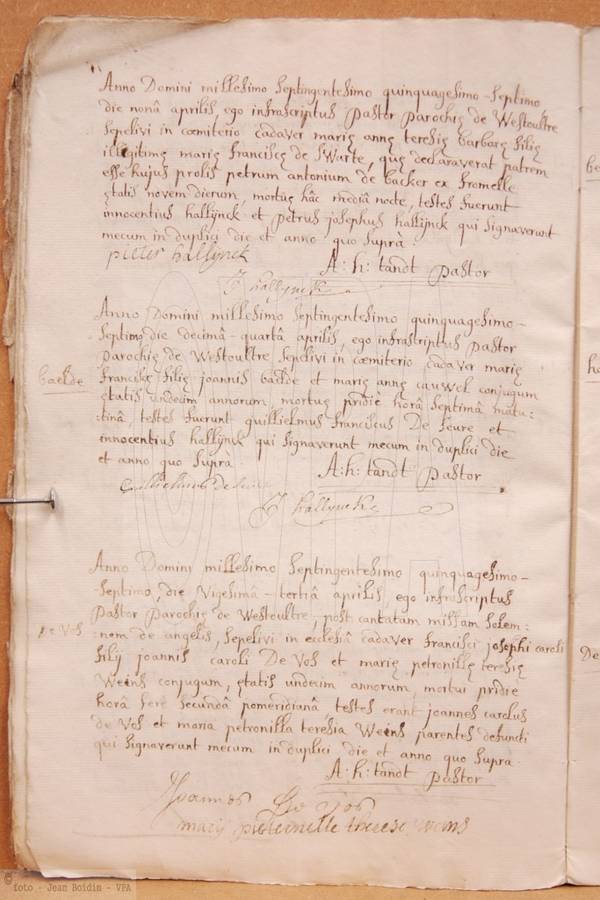 Anno Domini millesimo septingentesimo quinquagesimo-septimo
die nonâ aprilis, ego infrascriptus pastor parochię de Westoultre
sepelivi in cœmiterio cadaver marię annę teresię barbarę filię
illegitimę marię franciscę de swarte, quę declaraverat patrem
esse hujus prolis petrum antonium de backer ex fromelle
ętatis novem dierum, mortuę hâc mediâ nocte, testes fuerunt
innocentius hallijnck et petrus josephus hallijnck qui signaverunt
mecum in duplici die et anno quo suprà
pieter hallynck A: h: tandt pastor
J hallynck
Anno Domini millesimo septingentesimo quinquagesimo-
septimo die decimâ-quartâ aprilis, ego infrascriptus pastor
parochię de Westoultre sepelivi in cœmiterio cadaver marię
baelde
franciscę filię joannis baelde et marię annę cauwel conjugum
ętatis undecim annorum mortuę pridiè horâ septimâ matu:
:tinâ, testes fuerunt guillielmus franciscus De feure et
innocentius hallijnck qui signaverunt mecum in duplici die
et anno quo suprà A: h: tandt pastor
J hallynck
Anno Domini millesimo septingentesimo quinquagesimo-
-septimo, die vigesimâ-tertiâ aprilis ego infrascriptus
pastor parochię de Westoultre, post cantatam missam solem:
De Vos
:nem de angelis, sepelivi in ecclesiâ cadaver francisci josephi caroli
filij joannis caroli De Vos et marię petronillę teresię
Weins conjugum, ętatis undecim annorum, mortui pridie
horâ ferè secundâ pomeridianâ testes erant joannes carolus
de Vos et maria petronilla teresia Weins parentes defuncti
qui signaverunt mecum in duplici die et anno quo supra
A: h: tandt pastor
Joannes De Vos
marij pieternelle therese weins
© foto - Jean Boidin - VPA